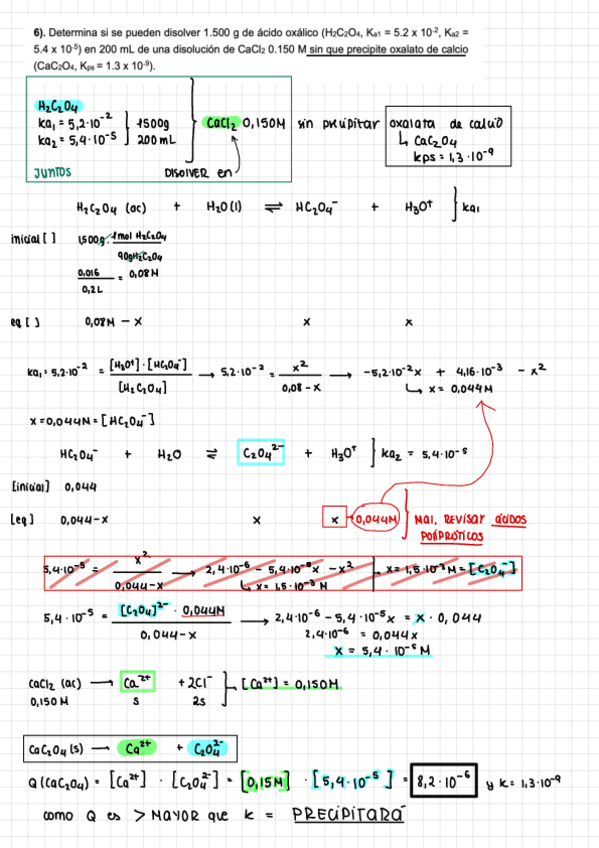 6). Determina si se pueden disolver 1.500 g de ácido oxálico (H₂C₂O₄, Ka1 = 5.2 x 10⁻², Ka2 =
5.4 x 10⁻⁵) en 200 mL de una disolución de CaCl₂ 0.150 M sin que precipite oxalato de calcio
(CaC₂O₄, Kps = 1.3 x 10⁻⁹).
H₂C₂O₄
ka₁ = 5,2·10⁻² } 1500g
ka₂ = 5,4·10⁻⁵ } 200 mL
JUNTOS
CaCl₂ 0,150M sin precipitar
DISOLVER en
oxalata de calcio
↳ CaC₂O₄
kps = 1,3·10⁻⁹
H₂C₂O₄ (ac) + H₂O(l) ⇌ HC₂O₄⁻ + H₃O⁺ } ka₁
inicial [ ] 1,500g · 1mol H₂C₂O₄ / 90gH₂C₂O₄
0,016 / 0,2L = 0,08M
eq [ ] 0,08M - x x x
ka₁ = 5,2·10⁻² = [H₃O⁺]·[HC₂O₄⁻] / [H₂C₂O₄] → 5,2·10⁻² = x² / 0,08-x → -5,2·10⁻²x + 4,16·10⁻³ - x²
↳ x = 0,044M
x = 0,044M = [HC₂O₄⁻]
HC₂O₄⁻ + H₂O ⇌ C₂O₄²⁻ + H₃O⁺ } ka₂ = 5,4·10⁻⁵
[inicial] 0,044
[eq] 0,044-x x x 0,044M } Mal, REVISAR ácidos
POLIPRÓTICOS
5,4·10⁻⁵ = x² / 0,044-x → 2,4·10⁻⁶ - 5,4·10⁻⁵x - x² → x = 1,5·10⁻³M = [C₂O₄⁻]
↳ x = 1,5·10⁻³ M
5,4·10⁻⁵ = [C₂O₄]²⁻ · 0,044M / 0,044-x → 2,4·10⁻⁶ - 5,4·10⁻⁵x = x · 0,044
2,4·10⁻⁶ = 0,044x
x = 5,4·10⁻⁵M
CaCl₂ (ac) → Ca²⁺ + 2Cl⁻ } [Ca²⁺] = 0,150M
0,150M s 2s
CaC₂O₄(s) → Ca²⁺ + C₂O₄²⁻
Q(CaC₂O₄) = [Ca²⁺] · [C₂O₄²⁻] = [0,15M] · [5,4·10⁻⁵] = 8,2·10⁻⁶ y k = 1,3·10⁻⁹
como Q es > MAYOR que k = PRECIPITARÁ